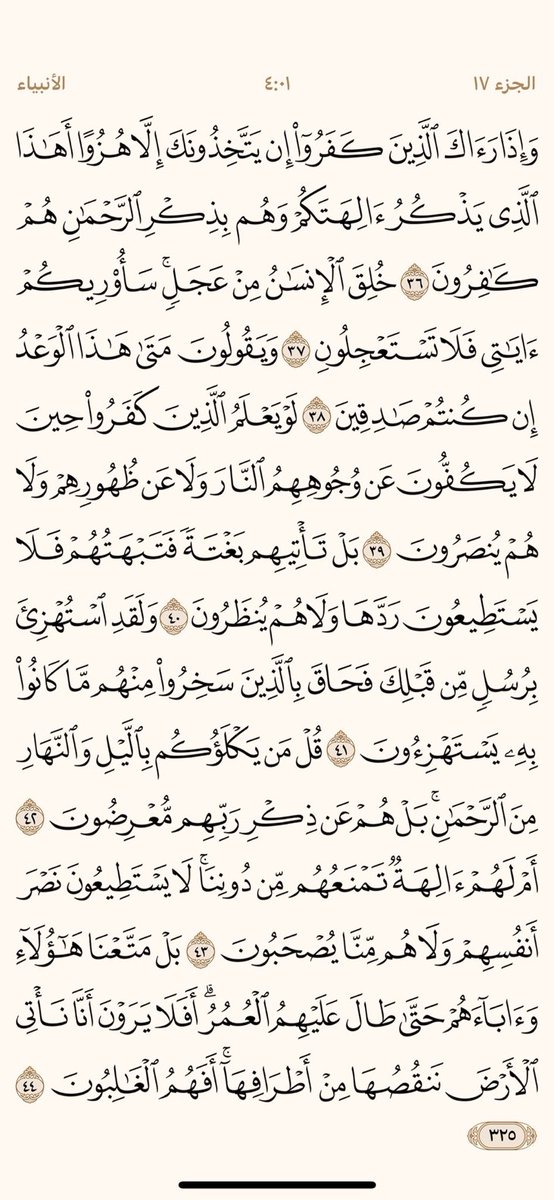 الجزء ١٧ ٤:٠١ الأنبياء
وَإِذَا رَءَاكَ ٱلَّذِينَ كَفَرُوٓاْ إِن يَتَّخِذُونَكَ إِلَّا هُزُوًا أَهَٰذَا
ٱلَّذِى يَذۡكُرُ ءَالِهَتَكُمۡ وَهُم بِذِكۡرِ ٱلرَّحۡمَٰنِ هُمۡ
كَٰفِرُونَ ٣٦ خُلِقَ ٱلۡإِنسَٰنُ مِنۡ عَجَلٖۚ سَأُوْرِيكُمۡ
ءَايَٰتِى فَلَا تَسۡتَعۡجِلُونِ ٣٧ وَيَقُولُونَ مَتَىٰ هَٰذَا ٱلۡوَعۡدُ
إِن كُنتُمۡ صَٰدِقِينَ ٣٨ لَوۡ يَعۡلَمُ ٱلَّذِينَ كَفَرُواْ حِينَ
لَا يَكُفُّونَ عَن وُجُوهِهِمُ ٱلنَّارَ وَلَا عَن ظُهُورِهِمۡ وَلَا
هُمۡ يُنصَرُونَ ٣٩ بَلۡ تَأۡتِيهِم بَغۡتَةٗ فَتَبۡهَتُهُمۡ فَلَا
يَسۡتَطِيعُونَ رَدَّهَا وَلَا هُمۡ يُنظَرُونَ ٤٠ وَلَقَدِ ٱسۡتُهۡزِئَ
بِرُسُلٖ مِّن قَبۡلِكَ فَحَاقَ بِٱلَّذِينَ سَخِرُواْ مِنۡهُم مَّا كَانُواْ
بِهِۦ يَسۡتَهۡزِءُونَ ٤١ قُلۡ مَن يَكۡلَؤُكُم بِٱلَّيۡلِ وَٱلنَّهَارِ
مِنَ ٱلرَّحۡمَٰنِۚ بَلۡ هُمۡ عَن ذِكۡرِ رَبِّهِم مُّعۡرِضُونَ ٤٢
أَمۡ لَهُمۡ ءَالِهَةٞ تَمۡنَعُهُم مِّن دُونِنَاۚ لَا يَسۡتَطِيعُونَ نَصۡرَ
أَنفُسِهِمۡ وَلَا هُم مِّنَّا يُصۡحَبُونَ ٤٣ بَلۡ مَتَّعۡنَا هَٰٓؤُلَآءِ
وَءَابَآءَهُمۡ حَتَّىٰ طَالَ عَلَيۡهِمُ ٱلۡعُمُرُۗ أَفَلَا يَرَوۡنَ أَنَّا نَأۡتِى
ٱلۡأَرۡضَ نَنقُصُهَا مِنۡ أَطۡرَافِهَآۚ أَفَهُمُ ٱلۡغَٰلِبُونَ ٤٤
٣٢٥